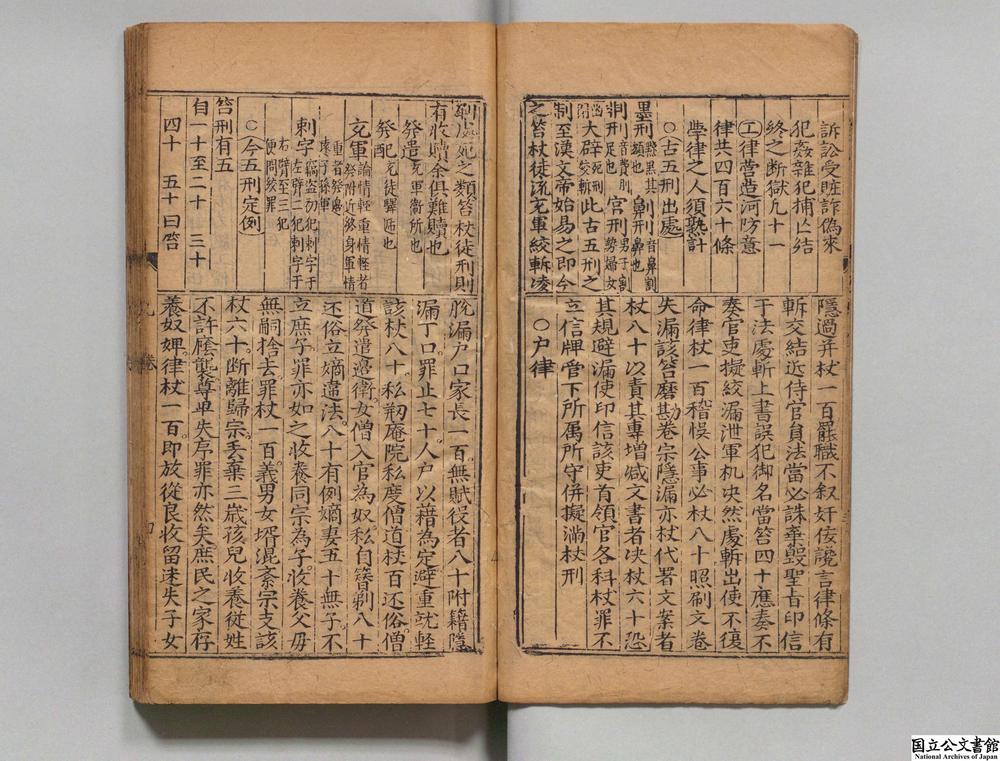 訴訟受賍詐偽來
犯姦雜犯捕亾結
終之断獄九十一
工律营造河防意
律共四百六十條
學律之人須熟計
○古五刑出處
墨刑
劓
剕刑
宫刑
大辟
此古五刑之
制至漢文帝始易之即今
之笞杖徒流充軍絞斬凌
隱過并杖一百罷職不叙奸佞讒言律條有
斬交結近侍官員法當必誅棄毀聖旨印信
于法處斬上書誤犯御名當笞四十應奏不
奏官吏擬絞漏泄軍机决然處斬出使不復
命律杖一百稽悞公事必杖八十照刷文卷
失漏該笞磨勘卷宗隱漏亦杖代署文案者
杖八十以責其專增减文書者决杖六十恐
其規避漏使印信該吏首領官各科杖罪不
立信牌當下所属所守併擬滿杖刑
○户律
遲處死之類笞杖徒刑則
有收贖余俱難贖也
發遣充軍衛所也
發配充徒驛逓也
充軍論情輕重情輕者
發附近終身軍情
重者發邊
刺字竊盗初犯刺字于
左臂二犯刺字于
右臂至三犯
便問絞罪
○今五刑定例
笞刑有五
自一十至二十 三十
四十 五十曰笞
脱漏户口家長一百無賦役者八十附籍隱
漏丁口罪止七十人户以藉為定避重就輕
該杖八十私刱庵院私度僧道杖百还俗僧
道發遣邊衛女僧入官為奴私自簮剃八十
还俗立嫡違法八十有例嫡妻五十無子不
立庶子罪亦如之收養同宗為子收養父毋
無嗣捨去罪杖一百義男女壻混紊宗支該
杖六十断離歸宗丢棄三歳孩兒收養從姓
不許𢊍襲尊卑失序罪亦然矣庶民之家存
養奴婢律杖一百即放從良收留迷失子女
国立公文書館
National Archives of Japan